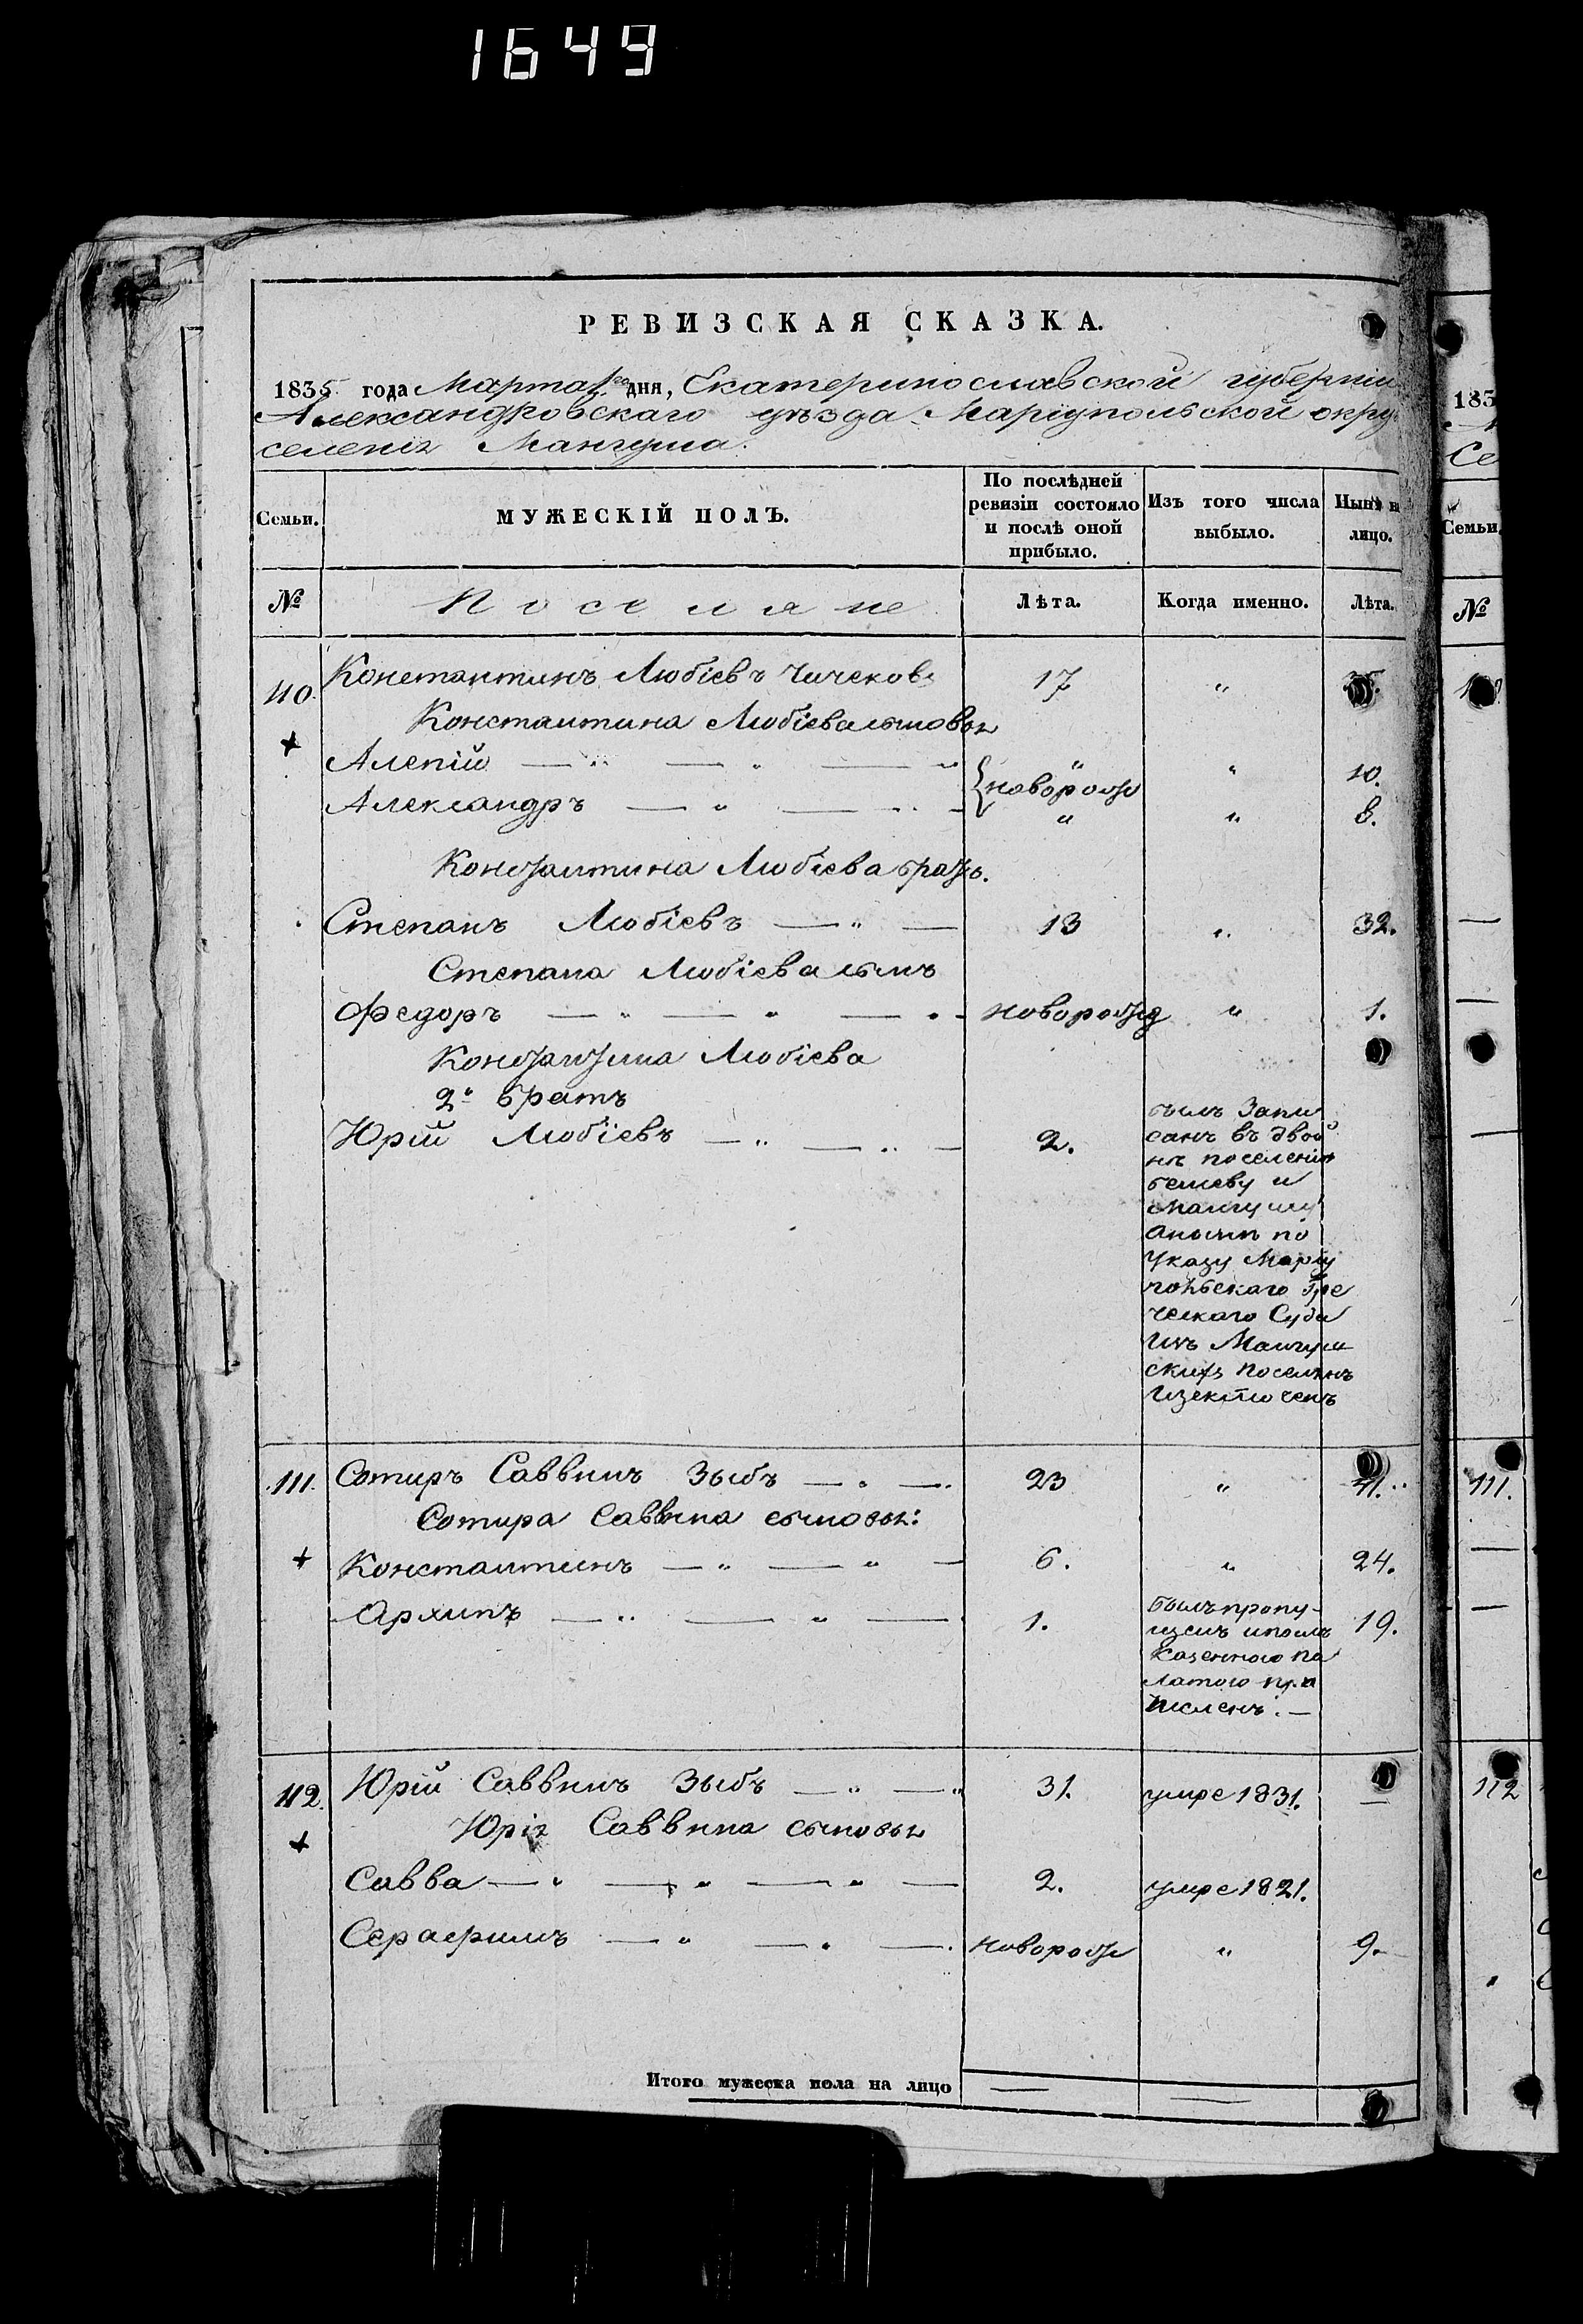 1649
РЕВИЗСКАЯ СКАЗКА.
1835 года Марта 1го дня, Екатеринославской губерніи
Александровскаго уѣзда Маріупольской окру
селенія Мангуша.
Семьи.
МУЖЕСКІЙ ПОЛЪ.
По послѣдней ревизіи состояло и послѣ оной прибыло.
Изъ того числа выбыло.
Нынѣ на лицо.
№
Поселяне
Лѣта.
Когда именно.
Лѣта.
110.
Константинъ Любіевъ Чичековъ 17 "
Константина Любіева сыновья
+
Алепій — " — " — " " " 10.
{новорожд
Александръ — " — " — " " 8.
Константина Любіева братъ.
Степанъ Любіевъ — " — 13 " 32.
Степана Любіева сынъ
Федоръ — " — " — " - новорожд " 1.
Константина Любіева
2й братъ
Юрій Любіевъ — " — " — 2.
былъ Запи
санъ въ двой
нѣ поселенія
бешеву и
Мангушу
а нынѣ по
Указу Маріу
польскаго Гре
ческаго Суда
изъ Мангуш
скихъ поселянъ
изключенъ
111. Сотиръ Саввинъ Зыбъ — " — 23 " 41.
Сотира Саввина сыновья:
+ Константинъ — " — " — 6. " 24.
Архипъ — " — " — 1. 19.
былъ пропу-
щенъ
казенною па
латою при
численъ. —
112. Юрій Саввинъ Зыбъ — " — " 31. умре 1831. —
+ Юрія Саввина сыновья
Савва — " — " — " — 2. умре 1821.
Серафимъ — " — " — новорожд " 9.
Итого мужеска пола на лицо — —
183
Се
Семьи
№
111.
112